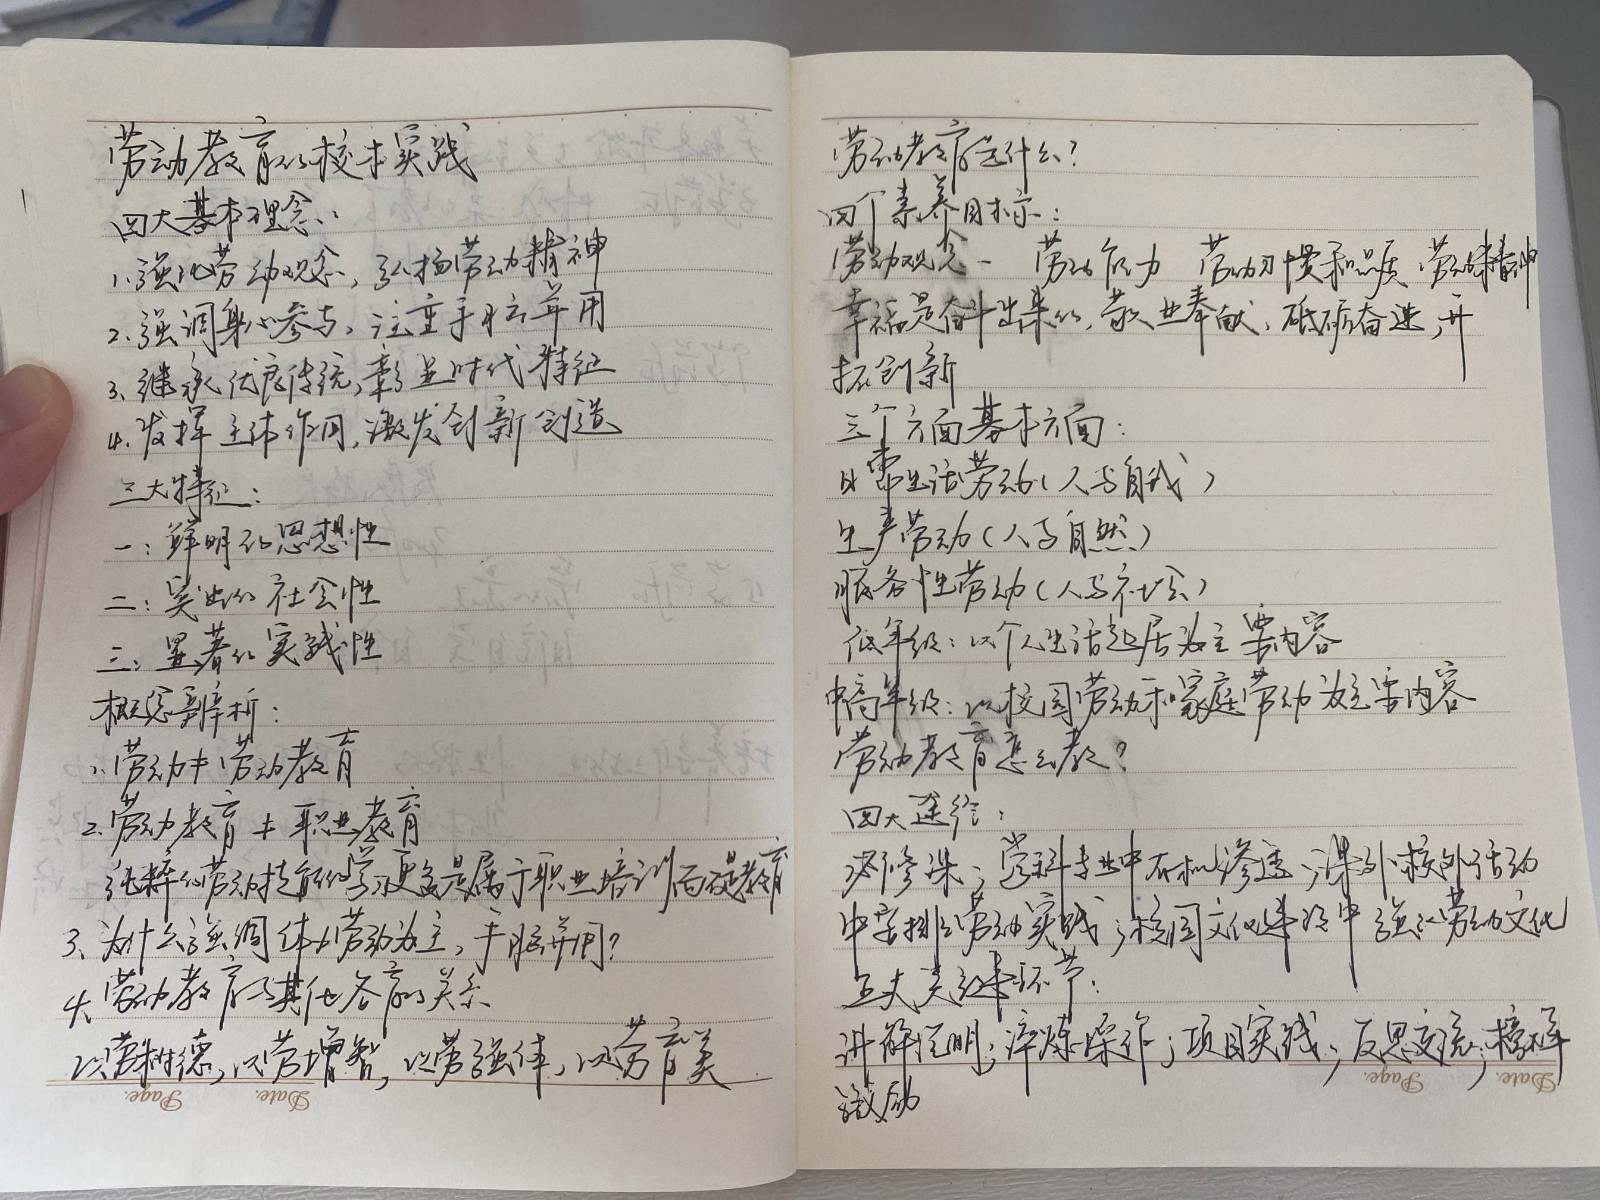 劳动教育的校本实践
四大基本理念:
1.强化劳动观念,弘扬劳动精神
2.强调身心参与,注重手脑并用
3.继承优良传统,彰显时代特征
4.发挥主体作用,激发创新创造
三大特征:
一:鲜明的思想性
二:突出的社会性
三:显著的实践性
概念辨析:
1.劳动≠劳动教育
2.劳动教育≠职业教育
纯粹的劳动技能的学习更多是属于职业培训而不是教育
3、为什么强调体力劳动为主,手脑并用?
4、劳动教育与其他各育的关系
以劳树德,以劳增智,以劳强体,以劳育美
Page. Date.
劳动教育是什么?
四个素养目标:
劳动观念、劳动能力 劳动习惯和品质 劳动精神
幸福是奋斗出来的,敬业奉献,砥砺奋进,开
拓创新
三个方面基本方面:
日常生活劳动(人与自我)
生产劳动(人与自然)
服务性劳动(人与社会)
低年级:以个人生活起居为主要内容
中高年级:以校园劳动和家庭劳动为主要内容
劳动教育怎么教?
四大途径:
必修课;学科专业中有机渗透;课外校外活动
中安排劳动实践;校园文化建设中强化劳动文化
五大关键环节:
讲解说明;淬炼操作;项目实践;反思交流;榜样
激励
Page. Date.